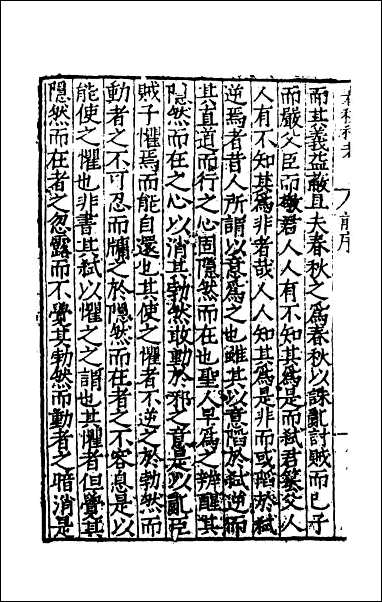 而其義益蔽且夫春秋之爲春秋以誅亂討賊而已子
而嚴父臣而敬君人人有不知其爲是而弒君簒父人
人有不知其爲非者哉人人知其爲是非而或䧟於弒
逆焉者昔人所謂以意爲之也雖其以意䧟於弒逆而
其直道而行之心固隱然而在也聖人早爲之辨醒其
隱然而在之心以消其勃然敢動於邪之意是以亂臣
賊子懼焉而能自還也其使之懼者不逆之於勃然而
動者之不可忍而牖之於隱然而在者之不容息是以
能使之懼也非書其弒以懼之之謂也其懼者但覺其
隱然而在者之忽露而不覺其勃然而動者之暗消是